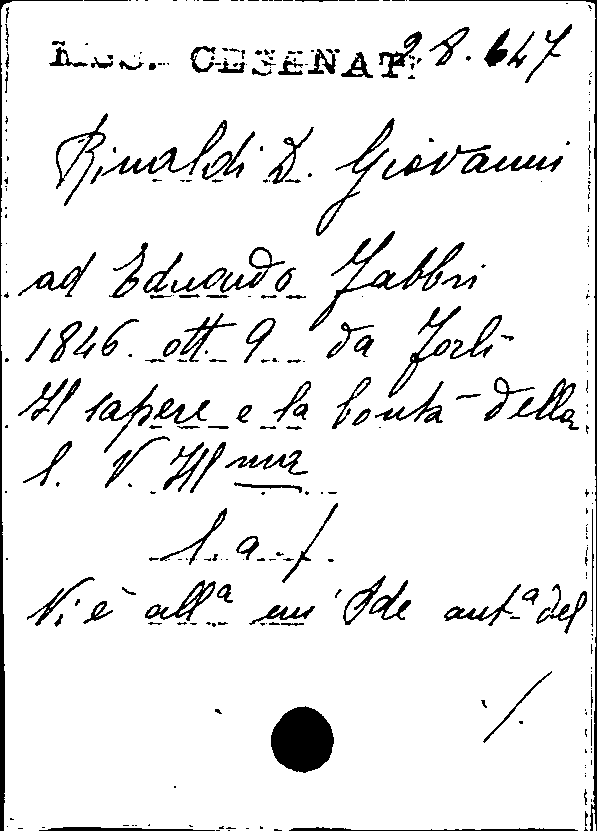 MSS. CESENATI 28.647
Rinaldi D. Giovanni
ad Eduardo Fabbri
1846. ott. 9. da Forlì
Il sapere e la bontà della
S. V. Illma
l. a. f.
Vi è all.a un' Ode aut.a del
./.